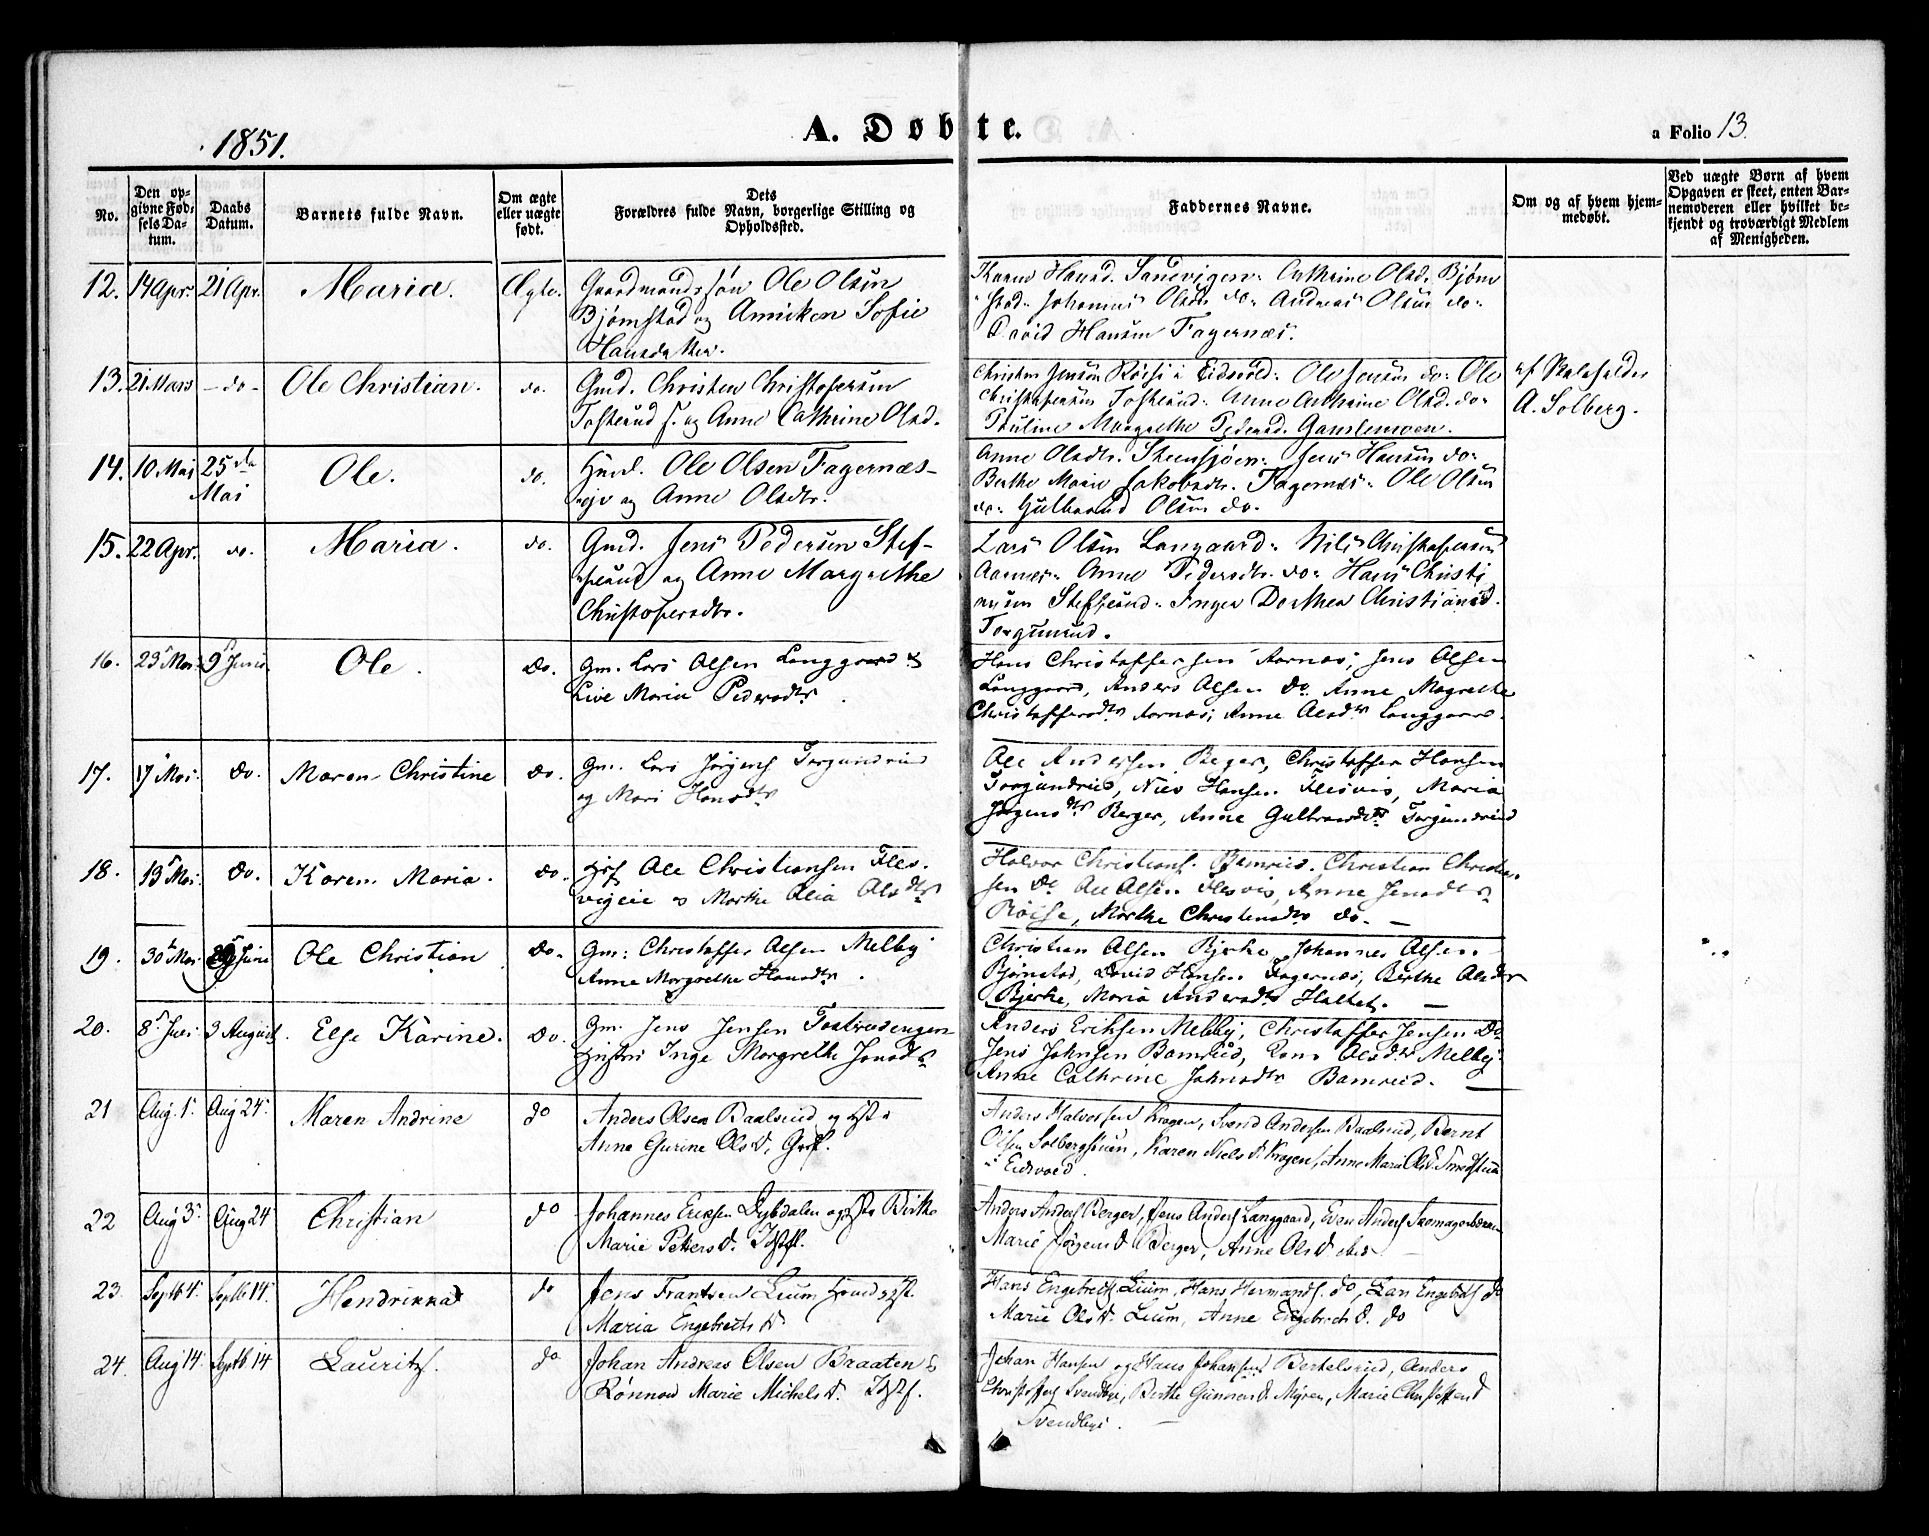 1851.
A. Døbte.
a Folio 13.
No.
Den opgivne Fødsels Datum.
Daabs Datum.
Barnets fulde Navn.
Om ægte eller uægte født.
Dets Forældres fulde Navn, borgerlige Stilling og Opholdssted.
Faddernes Navne.
Om og af hvem hjemmedøbt.
Ved uægte Børn af hvem Opgaven er skeet, enten Barnemoderen eller hvilket bekjendt og troværdigt Medlem af Menigheden.
12. 14 Apr. 21 Apr. Maria. Ægte. Gaardmandssøn Ole Olsen
Bjørnstad og Anniken Sofie
Hansdatter.
Karen Hansd. Sandvigen: Cathrine Olsd. Bjørn
stad: Johannes Olsen do: Andreas Olsen do:
David Hansen Fagernæs.
13. 21 Mars - do - Ole Christian. do. Gmd. Christen Christofersen
og Anne Cathrine Olsd.
Christen Jensen Röise i Eidsvold: Ole Jensen do: Ole
Christofersen Anne Cathrine Olsd. do:
Pauline Margrethe Pedersd.
af
A. Solberg.
14. 10 Mai 25de
Mai Ole. do. Huusm. Ole Olsen Fagernæs-
eje og Anne Olsdtr.
Anne Olsdtr. Steensjøen: Jens Hansen do:
Berthe Marie Jakobsdtr. Fagernæs: Ole Olsen
do: Gulbrand Olsen do.
15. 22 Apr. do. Maria. do. Gmd. Jens Pedersen Stef-
ferud og Anne Margrethe
Christofersdtr.
Lars Olsen Langaard: Nils Christofersen
Aarnes: Anne Pedersdtr. do: Hans Christi
ansen Stefferud: Inger Dorthea Christiansd.
Torgunrud.
16. 23 Mai 9 Juni Ole. do. Gm. Lars Olsen Langgaard &
Live Maria Pedersdtr.
Hans Christoffersen Aarnæs, Jens Olsen
Langgaard, Anders Olsen do. Anne Magrethe
Christoffersdtr Aarnæs; Anne Olsdtr Langgaard.
17. 17 Mai. do. Maren Christine do. Gm. Lars Jørgens Torgundrud
og Mari Hansdtr
Ole Andersen Berger, Christoffer Hansen
Torgundrud, Niels Hansen Flesvig, Maria
Jørgensdtr Berger, Anne Gulbrandsdtr Torgundrud
18. 13 Mai. do. Karen Maria. do. Ole Christiansen Fles-
vigeie & Marthe Olia Olsdtr
Halvor Christians. Bamrud. Christian Christian-
sen do. Ole Olsen Flesvig, Anne Jensdtr
Röise, Marthe Christensdtr do. -
19. 30te Mai Juni Ole Christian do. Gm: Christoffer Olsen Melby
Anne Margrethe Hansdtr.
Christian Olsen Bjerke, Johannes Olsen
Bjørnstad, David Hansen Fagernæs, Berthe Olsdtr
Bjerke, Maria Andersdtr Haltet. -
20. 8 Juli 3 August. Else Karine. do. Gm. Jens Jensen Tostrudengen
Hustru Inge Margrethe Jensdtr
Anders Eriksen Melby, Christoffer Jensen do
Jens Johnsen Bamrud, Olsdtr Melby
Anne Cathrine Johnsdtr Bamrud. -
21 Aug. 1. Aug 24. Maren Andrine do Anders Olsen Baalsrud og Hst.
Anne Gurine Olsd.
Anders Halvorsen Kragen, Svend Andersen Baalsrud, Bernt
Olsen Solbergstuen, Karen Nielsd. Kragen, Anne Marie Olsd. Smedstuen
i Eidsvold.
22 Aug 3. Aug 24 Christian do Johannes Ericksen Dybdalen og Hst Birthe
Marie Petersd.
Anders Anders Berger, Jens Anders Langgaard, Even Anders
Marie Jørgensd. Berger, Anne Olsd.
23. Septb 4. Septb 14. Hendrikka do Jens Frantsen Lium
Maria Engebretsd.
Hans Engebrets. Lium, Hans Hermands. do, Lars Engebrets. do
Marie Olsd. Lium, Anne Engebrechtsd. do
24. Aug 14. Septb 14 Lauritz. do Johan Andreas Olsen Braaten &
Rønnow Marie Michelsd.
Johan Hansen og Hans Johansen Bertelsrud, Anders
Christoffers Svendbye, Birthe Gunnersd. Myren, Marie Christoffersd
Svendbye.